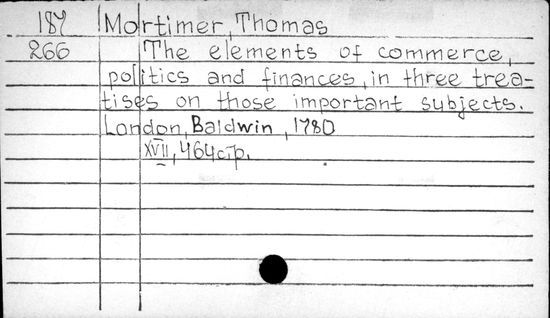 187 Mortimer, Thomas
266 The elements of commerce,
politics and finances, in three trea-
tises on those important subjects.
London, Baldwin, 1780
XVII, 464 стр.